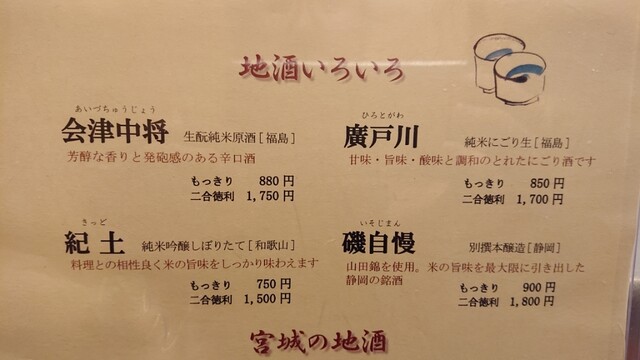 地酒いろいろ
あいづちゅうじょう
会津中将 生酛純米原酒[福島]
芳醇な香りと発砲感のある辛口酒
もっきり 880円
二合徳利 1,750円
ひろとがわ
廣戸川 純米にごり生[福島]
甘味・旨味・酸味と調和のとれたにごり酒です
もっきり 850円
二合徳利 1,700円
きっど
紀土 純米吟醸しぼりたて[和歌山]
料理との相性良く米の旨味をしっかり味わえます
もっきり 750円
二合徳利 1,500円
いそじまん
磯自慢 別撰本醸造[静岡]
山田錦を使用。米の旨味を最大限に引き出した
静岡の銘酒
もっきり 900円
二合徳利 1,800円
宮城の地酒